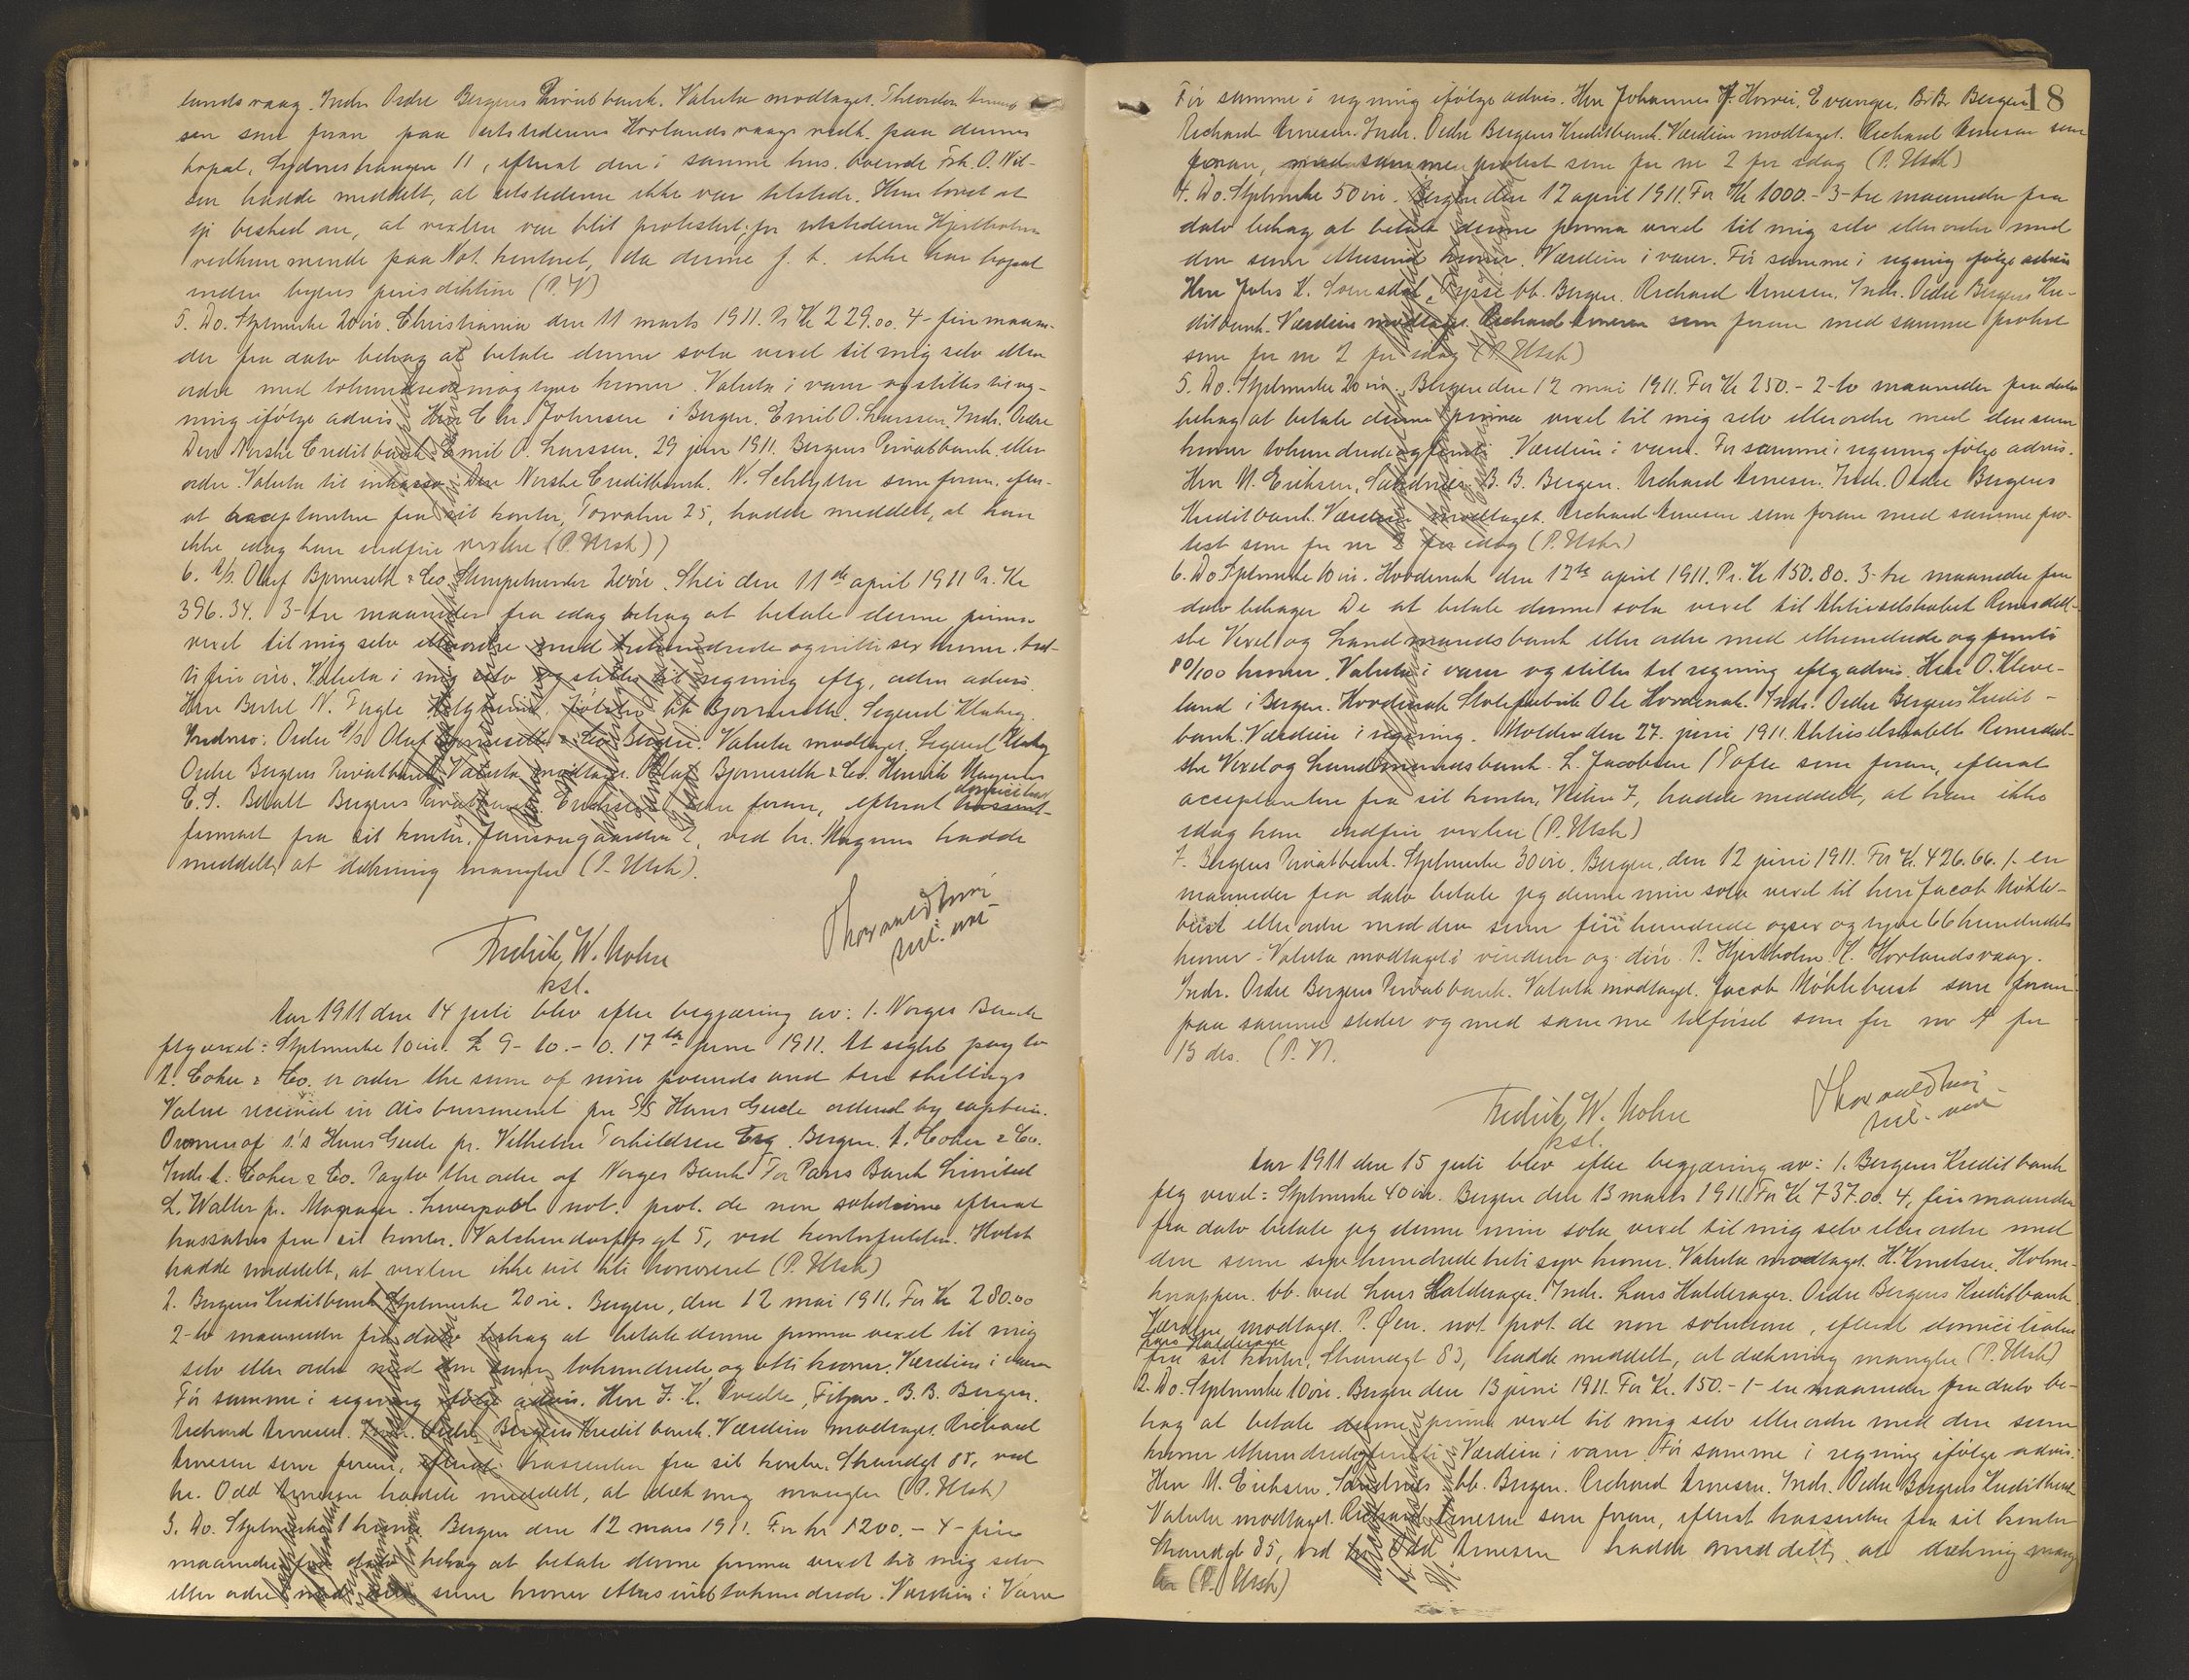 landsvaag. Indr. Ordre Bergens Privatbank. Valuta modtaget. Theodor
sen som foran paa utstederens Horlandsvaags vedk. paa dennes
bopæl, Sydneshaugen 11, efterat den i samme hus boende Frk. O. Nil-
sen hadde meddelt, at utstederen ikke var tilstede. Hun lovet at
gi besked om, at vexlen var blit protestert; for utstederen Hjertholm
vedkommende paa Not. kontoret, da denne f. t. ikke har bopæl
inden byens jurisdiktion (P. V)
5. Do. Stplmrke 20 øre. Christiania den 11 marts 1911. Pr Kr 229.00. 4- fire maane-
der fra dato behag at betale denne sola vexel til mig selv eller
ordre med tohundredeogniogtyve kroner. Valuta i varer og stilles til reg-
ning ifølge advis. Herr C. Chr. Johnsen i Bergen. Emil O. Larssen. Indr. Ordre
Den Norske Creditbank. Emil O. Larssen. 29 juni 1911. Bergens Privatbank eller
ordre. Valuta til inkasso. Den Norske Creditbank. N. Schlytter som foran, efter-
at acceptanten fra sit kontor, Torvalm 25, hadde meddelt, at han
ikke idag kan indfri vexlen (P. Utsk))
6. A/S. Oluf Bjørneseth & Co. Stempelmerke 20 øre. Skei den 11te april 1911 Pr. Kr
396.34. 3- tre maaneder fra idag behag at betale denne prima
vexel til mig selv eller ordre med trehundrede og nitti sex kroner. tret-
ti fire øre. Valuta i mig selv og stilles til regning eftg. uden advis
Herr Bertel N. Fugle Jølster bb Bjørneseth. Sigurd Klakeg.
Indorso: Ordre A/S Oluf Bjørneseth & Co. Bergen. Valuta modtaget. Sigurd Klakeg
Ordre Bergens Privatbank Valuta modtaget. Oluf Bjørneseth & Co. Henrik Magnus
C. S. Betalt Bergens Privatbank som foran, efterat domiciliat-
firmaet fra sit kontor, Jansongaarden 2, ved hr. Magnus hadde
meddelt, at dækning mangler (P. Utsk).
Fredrik W. Mohn
kst.
Aar 1911 den 14 juli blev efter begjæring av: 1. Norges Bank
flg vexel: Stplmrke 10 øre. £ 9- 10.- 0. 17th June 1911. At sight pay to
A. Coker & Co. or order the sum of nine pounds and ten shillings
Value received in disbursment pr S/S Hans Gude ordered by captain.
Owners of s.s Hans Gude pr. Vilhelm Torkildsen Esq. Bergen. A. Coker & Co.
Indr. A. Coker & Co. Pay to the order of Norges Bank For Parrs Bank Limited
L. Walter p. Manager. Liverpool not. prot. de non solutione efterat
trassatus fra sit kontor. Valckendorffs gt 5, ved kontorfuldm. Holst
hadde meddelt, at vexlen ikke vil bli honoreret (P. Utsk)
2. Bergens Kreditbank Stplmrke 20 øre. Bergen, den 12 mai 1911. For Kr 280.00
2- to maaneder fra dato behag at betale denne prima vexel til mig
selv eller ordre med den sum tohundrede og otti kroner. Værdien i varer
Før samme i regning ifølge advis. Herr J. K. Tvedte, Fitjar. B.B. Bergen.
Richard Arnesen. Indr. Ordre Bergens Kredit bank. Værdien modtaget. Richard
Arnesen som foran, efterat trassenten fra sit kontor. Strandgt 85, ved
hr. Odd Arnesen hadde meddelt, at dækning mangler (P. Utsk)
3. Do. Stplmrke 1 krone. Bergen den 12 mars 1911. For kr 1200.- 4- fire
maaneder fra dato behag at betale denne prima vexel til mig selv
eller ordre med den sum kroner ettusindtohundrede. Værdien i Varer
18
Før samme i regning ifølge advis. Herr Johannes H. Horvei, Evanger. B.B. Bergen
Richard Arnesen. Indr. Ordre Bergens Kreditbank. Værdien modtaget. Richard Arnesen som
foran, med samme protest som for nr 2 for idag (P. Utsk)
4. Do. Stplmrke 50 øre. Bergen den 12 april 1911. For Kr 1000.- 3- tre maaneder fra
dato behag at betale denne prima vexel til mig selv eller ordre med
den sum ettusind kroner. Værdien i varer. Før samme i regning ifølge advis
Herr Johs K. bb. Bergen. Richard Arnesen. Indr. Ordre Bergens Kre-
ditbank. Værdien modtaget. Richard Arnesen som foran med samme protest
som for nr 2 for idag (P. Utsk)
5. Do. Stplmrke 20 øre. Bergen den 12 mai 1911. For Kr 250.- 2- to maaneder fra dato
behag at betale denne prima vexel til mig selv eller ordre med den sum
kroner tohundredeogfemti Værdien i varer. Før samme i regning ifølge advis.
Herr M. Eriksen, Sandnæs. B. B. Bergen. Richard Arnesen. Indr. Ordre Bergens
Kreditbank. Værdien modtaget. Richard Arnesen som foran med samme pro-
test som for nr 2 for idag (P. Utsk)
6. Do Stplmrke 10 øre. Hovdenak den 12te april 1911. Pr. Kr 150.80. 3- tre maaneder fra
dato behager De at betale denne sola vexel til Aktieselskabet Romsdal-
ske Vexel og Landmandsbank eller ordre med ethundrede og femti
80/100 kroner. Valuta i varer og stilles til regning eftg advis. Herr O. Kleve-
land i Bergen. Hovdenak Stolefabrik Ole Hovdenak. Indr. Ordre Bergens Kredit-
bank. Værdien i regning. Molde den 27. juni 1911. Aktieselskabet Romsdal-
ske Vexel og Landmandsbank. L. Jacobsen / Tofte som foran, efterat
acceptanten fra sit kontor, 7, hadde meddelt, at han ikke
idag kan indfri vexlen (P. Utsk)
7. Bergens Privatbank. Stplmrke 30 øre. Bergen, den 12 juni 1911. For Kr. 426.66. 1- en
maaneder fra dato betale jeg denne min sola vexel til herr Jacob Møhle-
bust eller ordre med den sum fire hundrede og sex og tyve 66 hundrededels
kroner. Valuta modtaget i vinduer og døre. P. Hjertholm. H. Horlandsvaag.
Indr. Ordre Bergens Privatbank. Valuta modtaget. Jacob Møhlebust som foran
paa samme steder og med samme tilførsel som for nr 4 for
13 ds. (P. V).
Fredrik W. Mohn
kst.
Aar 1911 den 15 juli blev efter begjæring av: 1. Bergens Kreditbank
flg vexel: Stplmrke 40 øre. Bergen den 13 marts 1911. For Kr 737.00. 4, fire maaneder
fra dato betale jeg denne min sola vexel til mig selv eller ordre med
den sum syv hundrede treti syv kroner. Valuta modtaget. H. Knudsen, Holme-
knappen. bb. ved Lars Haldorager. Indr. Lars Haldorager. Ordre Bergens Kreditbank
Værdien modtaget. P. Øen. not. prot. de non solutione, efterat domiciliaten
Lars Haldorager
fra sit kontor, Strandgt 83, hadde meddelt, at dækning mangler (P. Utsk)
2. Do. Stplmrke 10 øre. Bergen den 13 juni 1911. For Kr. 150.- 1- en maaneder fra dato be-
hag at betale denne prima vexel til mig selv eller ordre med den sum
kroner ethundredeogfemti Værdien i varer. Før samme i regning ifølge advis.
Herr M. Eriksen. Sandnæs bb. Bergen. Richard Arnesen. Indr. Ordre Bergens Kreditbank
Valuta modtaget. Richard Arnesen som foran, efterat trassenten fra sit kontor
Strandgt 85, ved hr. Odd Arnesen hadde meddelt, at dækning mang
ler (P. Utsk)